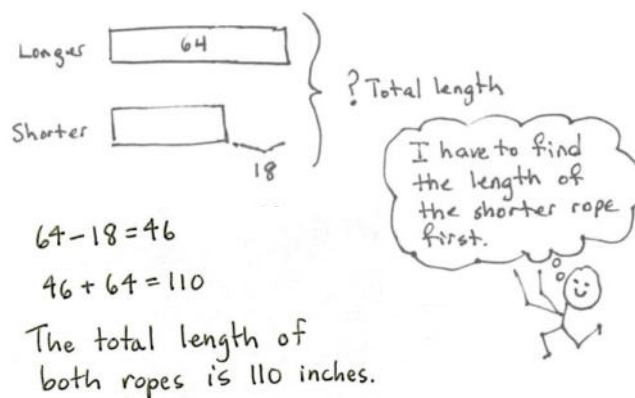 Longer 64
? Total length
Shorter
18
I have to find
the length of
the shorter rope
first.
64-18=46
46 + 64 = 110
The total length of
both ropes is 110 inches.